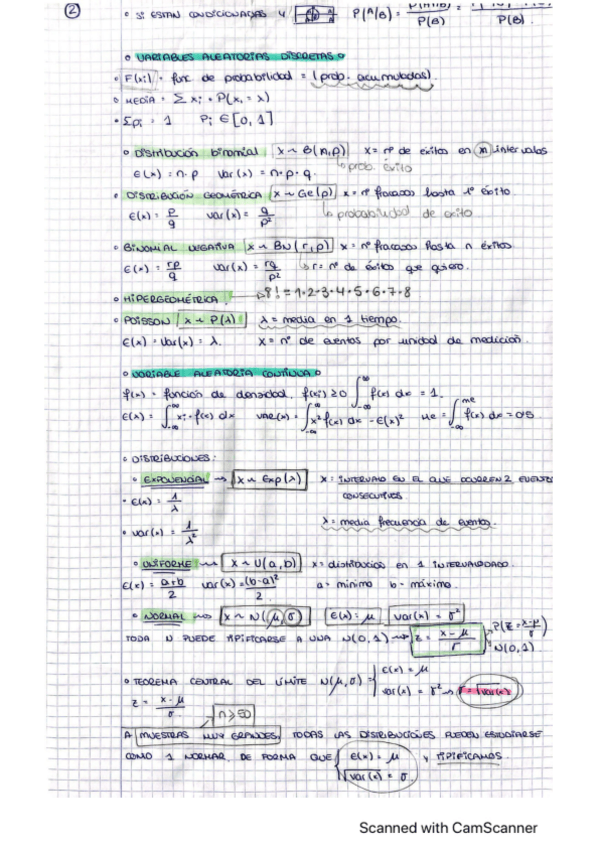 ②
• SI ESTAN CONDICIONADAS Y P(A/B) = P(A∩B) / P(B) = / P(B).
• VARIABLES ALEATORIAS DISCRETAS •
• F(xi) = func. de probabilidad = (prob. acumuladas).
• MEDIA = Σ xi · P(xi = x)
• Σpi = 1 Pi ∈ [0, 1]
• Distribución binomial x ~ B(n,p) x = nº de éxitos en n intervalos
ε(x) = n · p var(x) = n · p · q. ↳ prob. éxito
• DISTRIBUCIÓN GEOMÉTRICA x ~ Ge(p) x = nº fracasos hasta 1º éxito.
ε(x) = p/q var(x) = q/p² ↳ probabilidad de éxito
• BINOMIAL NEGATIVA x ~ BN(r,p) x = nº fracasos hasta n éxitos
ε(x) = rp/q var(x) = rq/p² ↳ r = nº de éxitos que quiero.
• HIPERGEOMÉTRICA → 8! = 1·2·3·4·5·6·7·8
• POISSON x ~ P(λ) λ = media en 1 tiempo.
ε(x) = var(x) = λ. x = nº de eventos por unidad de medición.
• VARIABLE ALEATORIA CONTÍNUA •
f(x) = función de densidad. f(xi) ≥ 0 ∫_{-∞}^{∞} f(x) dx = 1.
ε(x) = ∫_{-∞}^{∞} xi · f(x) dx var(x) = ∫_{-∞}^{∞} x² f(x) dx - ε(x)² Me = ∫_{-∞}^{me} f(x) dx = 0'5
• DISTRIBUCIONES:
• EXPONENCIAL → x ~ Exp(λ) x = INTERVALO EN EL QUE OCURREN 2 EVENTOS
• ε(x) = 1/λ CONSECUTIVOS
• var(x) = 1/λ² λ = media frecuencia de eventos.
• UNIFORME → x ~ U(a,b) x = distribución en 1 INTERVALO DADO.
ε(x) = a+b/2 var(x) = (b-a)²/2 a = mínimo b = máximo.
• NORMAL → x ~ N(μ,σ) ε(x) = μ var(x) = σ²
TODA N PUEDE TIPIFICARSE A UNA N(0,1) → z = x-μ/σ P(z = x-μ/σ) N(0,1)
• TEOREMA CENTRAL DEL LÍMITE N(μ,σ) = { ε(x) = μ
var(x) = σ² → σ = √var(x)
z = x-μ/σ
n ≥ 50
A MUESTRAS MUY GRANDES, TODAS LAS DISTRIBUCIONES PUEDEN ESTUDIARSE
COMO 1 NORMAL, DE FORMA QUE { ε(x) = μ Y TIPIFICAMOS.
√var(x) = σ.
Scanned with CamScanner